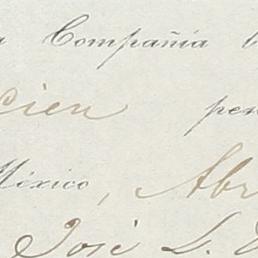 Compañía
cien pes
México, Abr
José L.